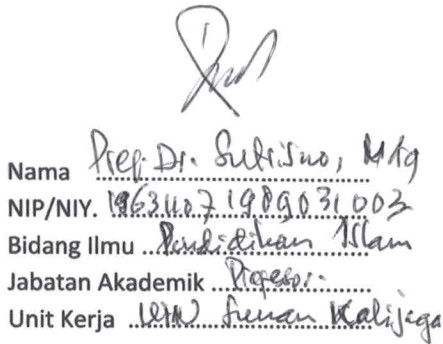 Nama Prof. Dr. Sutrisno, M.Ag
NIP/NIY. 19631107 198903 1 003
Bidang Ilmu Pendidikan Islam
Jabatan Akademik Profesor.
Unit Kerja UIN Sunan Kalijaga